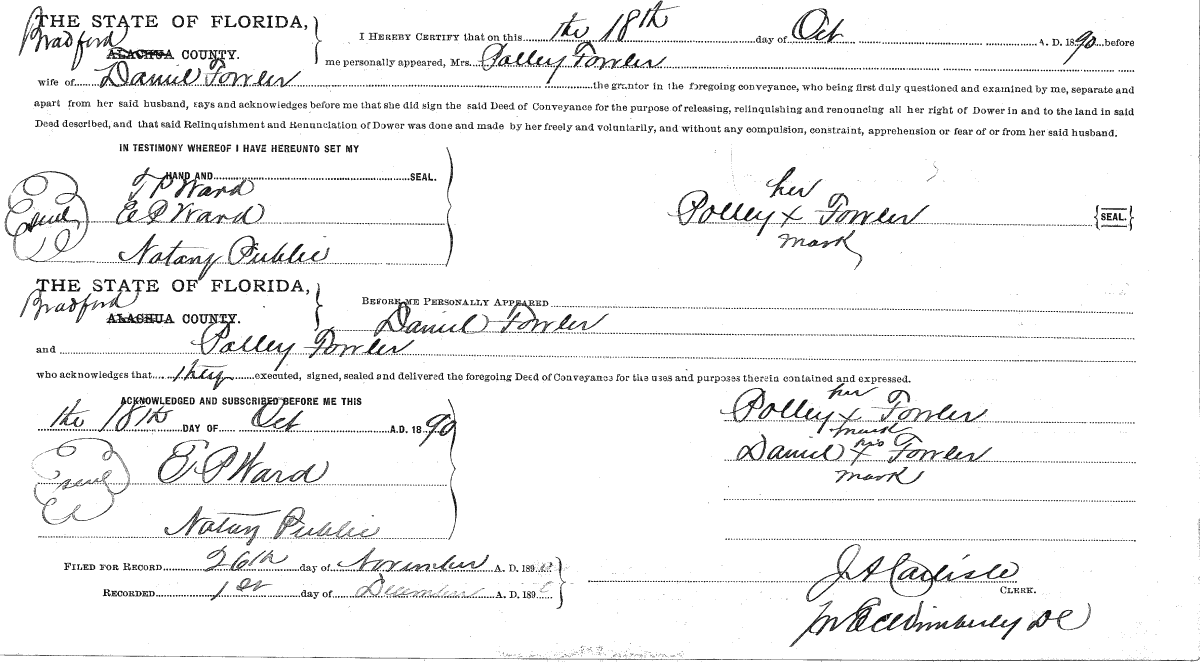 THE STATE OF FLORIDA,
Bradford
ALACHUA COUNTY.
I HEREBY CERTIFY that on this the 18th day of Oct A. D. 1890 before
me personally appeared, Mrs. Polley Fowler
wife of Daniel Fowler the grantor in the foregoing conveyance, who being first duly questioned and examined by me, separate and
apart from her said husband, says and acknowledges before me that she did sign the said Deed of Conveyance for the purpose of releasing, relinquishing and renouncing all her right of Dower in and to the land in said
Deed described, and that said Relinquishment and Renunciation of Dower was done and made by her freely and voluntarily, and without any compulsion, constraint, apprehension or fear of or from her said husband.
IN TESTIMONY WHEREOF I HAVE HEREUNTO SET MY
HAND AND SEAL.
T P Ward
Seal E P Ward
Notary Public
her
Polley x Fowler {SEAL.}
mark
THE STATE OF FLORIDA,
Bradford
ALACHUA COUNTY.
BEFORE ME PERSONALLY APPEARED
Daniel Fowler
and Polley Fowler
who acknowledges that they executed, signed, sealed and delivered the foregoing Deed of Conveyance for the uses and purposes therein contained and expressed.
ACKNOWLEDGED AND SUBSCRIBED BEFORE ME THIS
the 18th DAY OF Oct A.D. 1890
Seal E P Ward
Notary Public
her
Polley x Fowler
mark
his
Daniel x Fowler
mark
FILED FOR RECORD 26th day of November A. D. 189
RECORDED 1st day of December A. D. 189
J A Carlisle
CLERK.
Wimberly DC